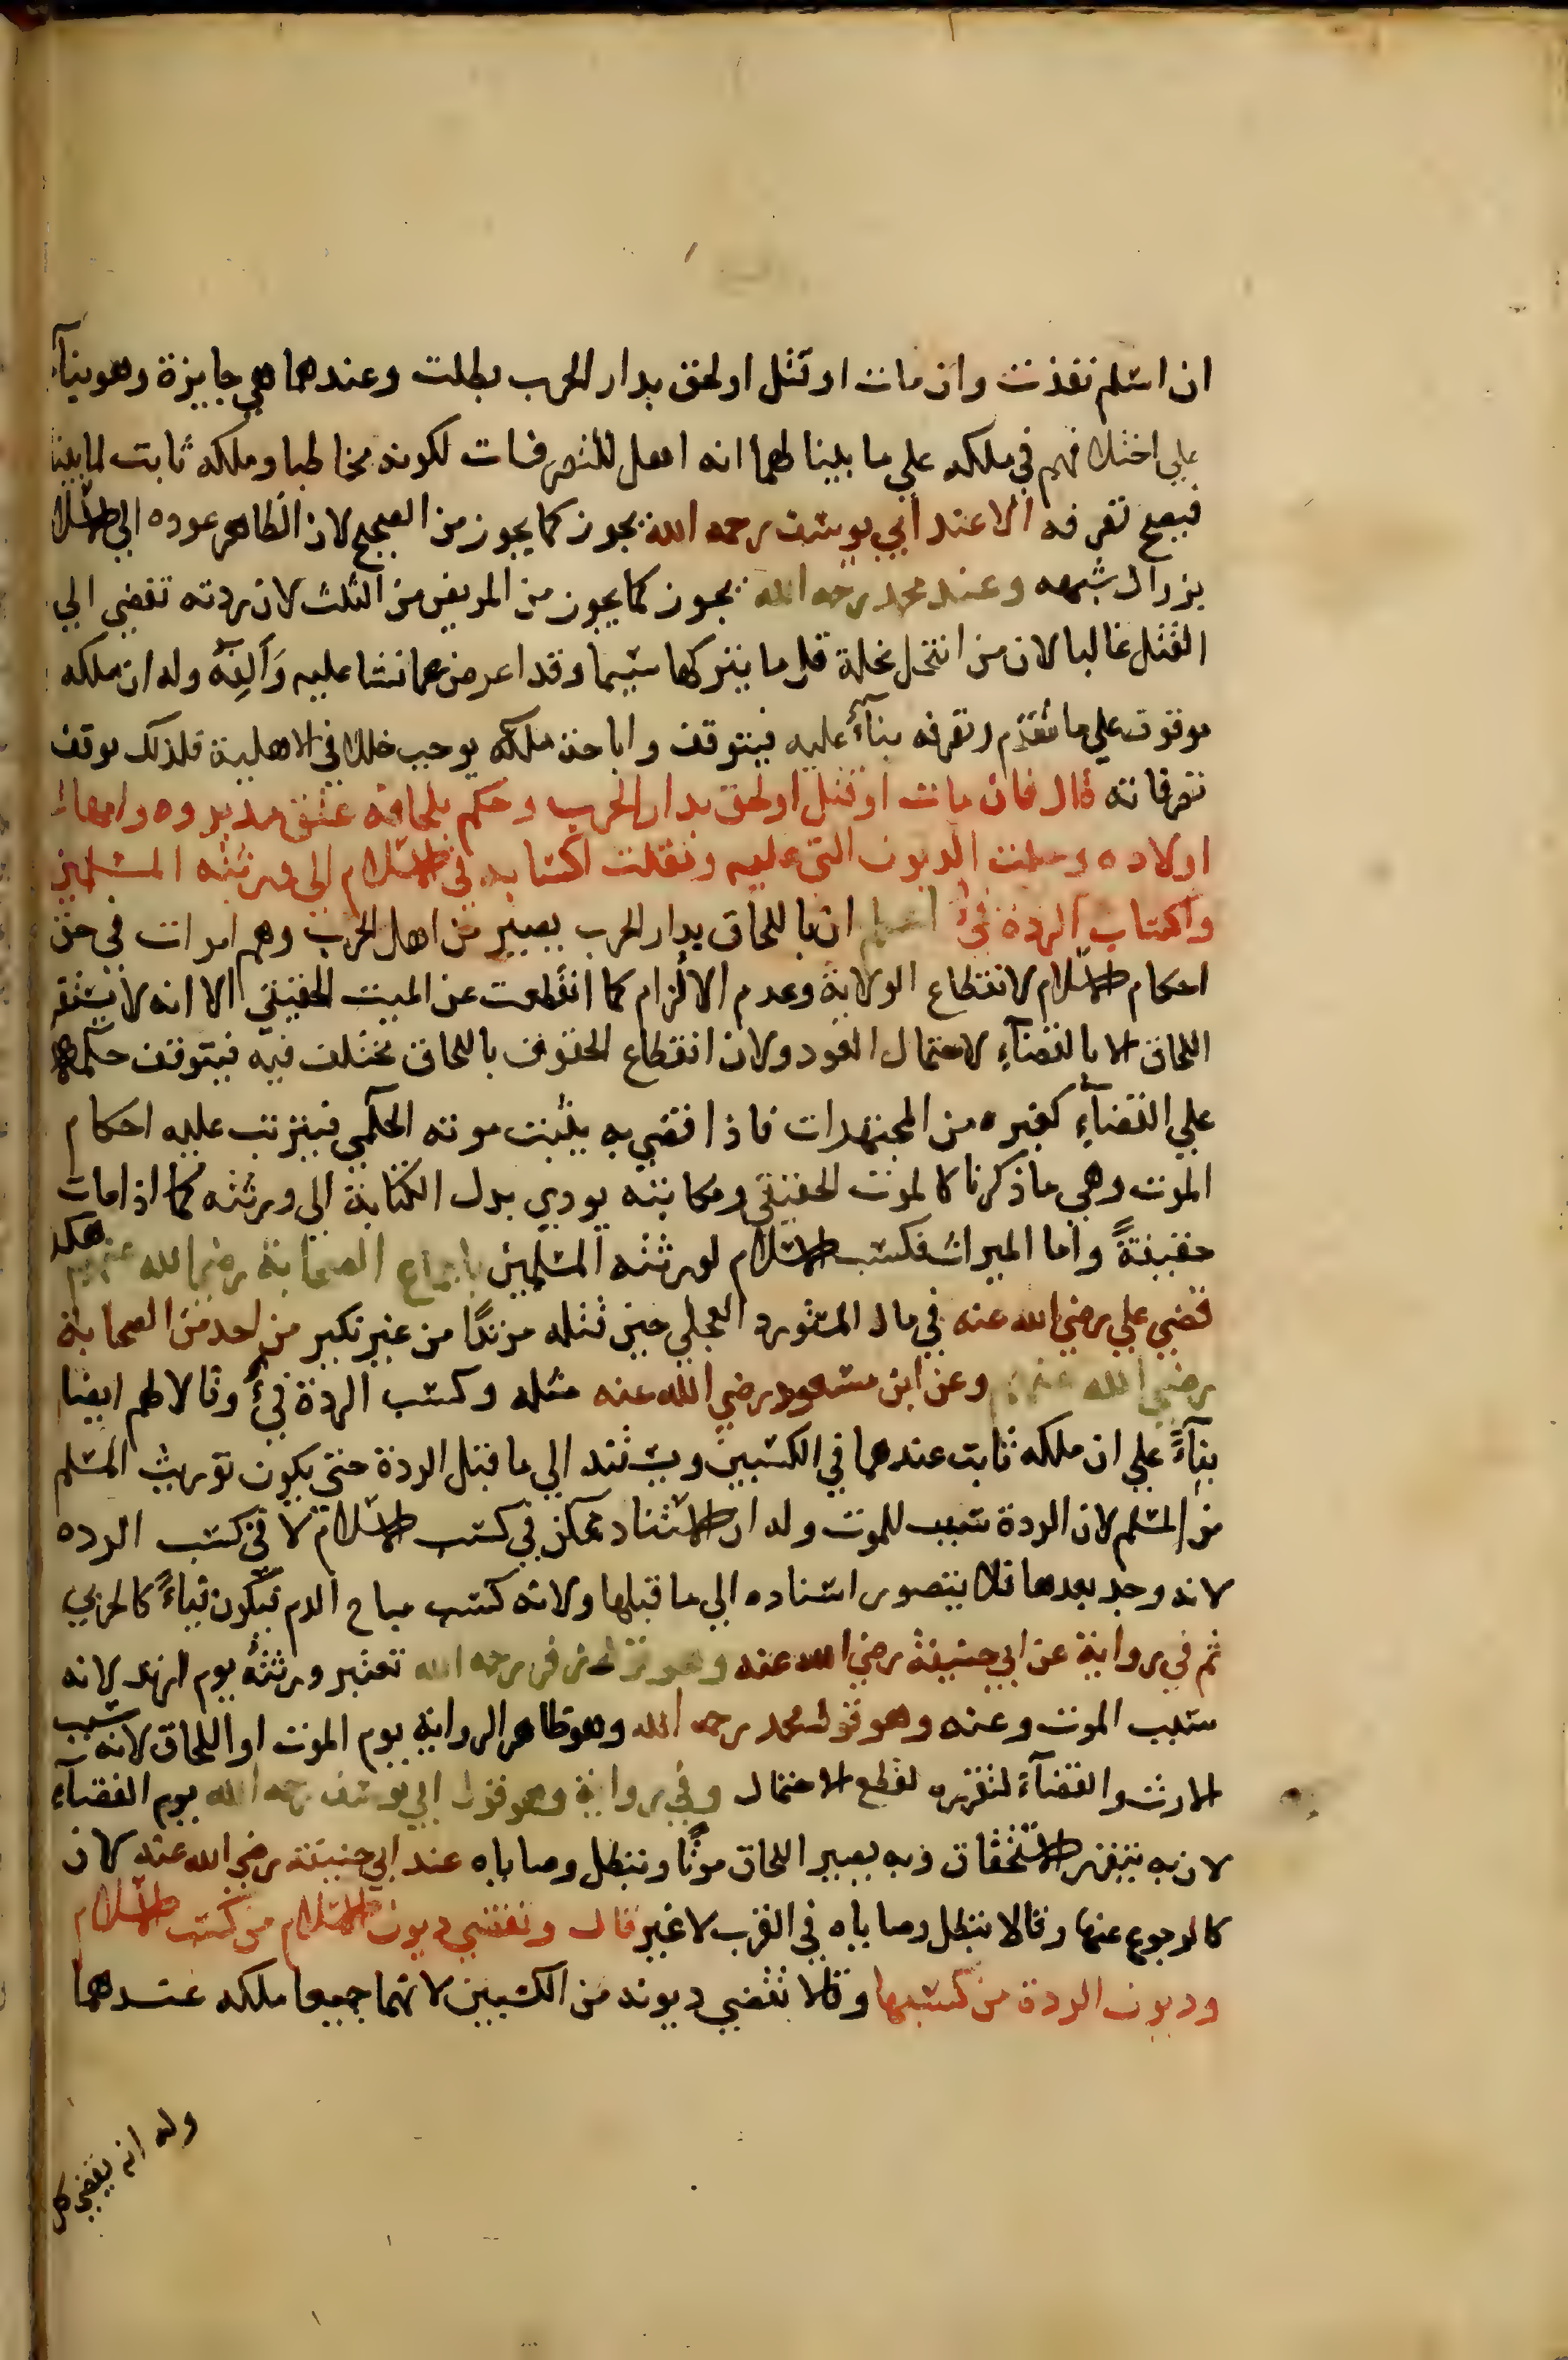 ان اسلم نفذت وان مات او قتل او لحق بدار الحرب بطلت وعندهما هي جايزة وهو بناء
علي اختلافهم في ملكه علي ما بينا لهما انه اهل للتصرفات لكونه مخاطبا وملكه ثابت لما بينا
فيصح تصرفه الا عند ابي يوسف رحمه الله يجوز كما يجوز من الصحيح لان الظاهر عوده الي الاسلام
بزوال شبهه وعند محمد رحمه الله يجوز كما يجوز من المريض من الثلث لان ردته تفضي الي
القتل غالبا لان من انتحل نحلة قل ما يتركها سيما وقد اعرض عما نشا عليه وَاَلِفَهُ وله ان ملكه
موقوف علي ما تقدم وتصرفه بناءً عليه فيتوقف واباحة ملكه يوجب خللا في الاهلية فلذلك توقف
تصرفاته قال فان مات او قتل او لحق بدار الحرب وحكم بلحاقه عتق مدبروه وامهات
اولاده وحلت الديون التي عليه ونقلت اكسابه في الاسلام الي ورثته المسلمين
واكساب الردة فيٌ اعلم ان باللحاق بدار الحرب يصير من اهل الحرب وهم اموات في حق
احكام الاسلام لانقطاع الولاية وعدم الالزام كما انقطعت عن الميت الحقيقي الا انه لا يستقر
اللحاق الا بالقضآءِ لاحتمال العود ولان انقطاع الحقوق باللحاق مختلف فيه فيتوقف حكمها
علي القضآءِ كغيره من المجتهدات فاذا قضي به يثبت موته الحكمي فيترتب عليه احكام
الموت وهي ما ذكرنا كالموت الحقيقي ومكاتبته يودي بدل الكتابة الي ورثته كما اذا مات
حقيقةً واما الميراث فكسب الاسلام لورثته المسلمين باجماع الصحابة رضي الله عنهم هكذا
قضي علي رضي الله عنه في مال المستورد العجلي حين قتله مرتدًا من غير نكير من احد من الصحابة
رضي الله عنهم وعن ابن مسعود رضي الله عنه مثله وكسب الردة فيٌ وقالا لهم ايضا
بنآءً علي ان ملكه ثابت عندهما في الكسبين ويستند الي ما قبل الردة حتي يكون توريث المسلم
من المسلم لان الردة سبب للموت وله ان الاستناد ممكن في كسب الاسلام لا في كسب الرده
لانه وجد بعدها فلا يتصور استناده الي ما قبلها ولانه كسب مباح الدم فيكون فياءً كالحربي
ثم في رواية عن ابي حنيفة رضي الله عنه وهو قول زفر رحمه الله تعتبر ورثته يوم ارتد لانه
سبب الموت وعنه وهو قول محمد رحمه الله وهو ظاهر الرواية يوم الموت او اللحاق لانه سبب
الارث والقضآء لتقرره لقطع الاحتمال وفي رواية وهو قول ابي يوسف رحمه الله يوم القضآء
لان به يتقرر الاستحقاق وبه يصير اللحاق موتًا وتبطل وصاياه عند ابي حنيفة رضي الله عنه لان
كالرجوع عنها وقالا تبطل وصاياه في القرب لا غير قال وتقضي ديون الاسلام من كسب الاسلام
وديون الردة من كسبها وقالا تقضي ديونه من الكسبين لانهما جميعا ملكه عندهما
وله انه يقضي كل